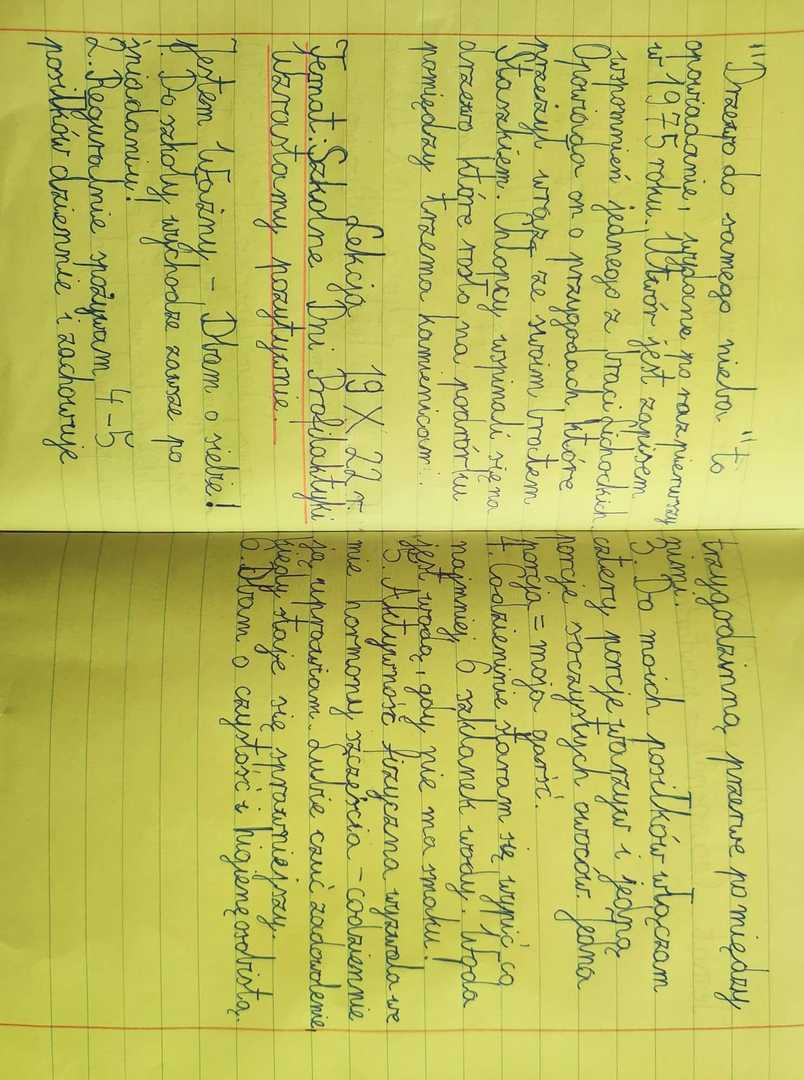 "Drzewo do samego nieba" to
opowiadanie, wydanie po raz pierwszy
w 1975 roku. Utwór jest zapisem
wspomnień jednego z braci Lichockich
Opowiada on o przygodach, które
przeżył wraz ze swoim bratem
Staszkiem. Chłopcy wspinali się na
drzewo które rosło na podwórku
pomiędzy trzema kamienicami.
Lekcja 19 X 22 r.
Temat: Szkolne Dni Profilaktyki
Wzrastamy pozytywnie.
Jestem Ważny - Dbam o siebie!
1. Do szkoły wychodze zawsze po
śniadaniu!
2. Regularnie spożywam 4-5
posiłków dziennie i zachowuje
trzygodzinną przerwe pomiędzy
nimi.
3. Do moich posiłków włączam
cztery porcje warzyw i jedną
porcje soczystych owoców. Jedna
porcja = moja garść.
4. Codzieninie staram się wypić co
najmniej 6 szklanek wody. Woda
jest wodą, gdy nie ma smaku.
5. Aktywność fizyczna wyzwala we
mnie hormony szczęścia - codziennie
ją uprawiam. Lubie czuć zadowolenie,
kiedy staje się sprawniejszy.
6. Dbam o czystość i higienę osobistą.